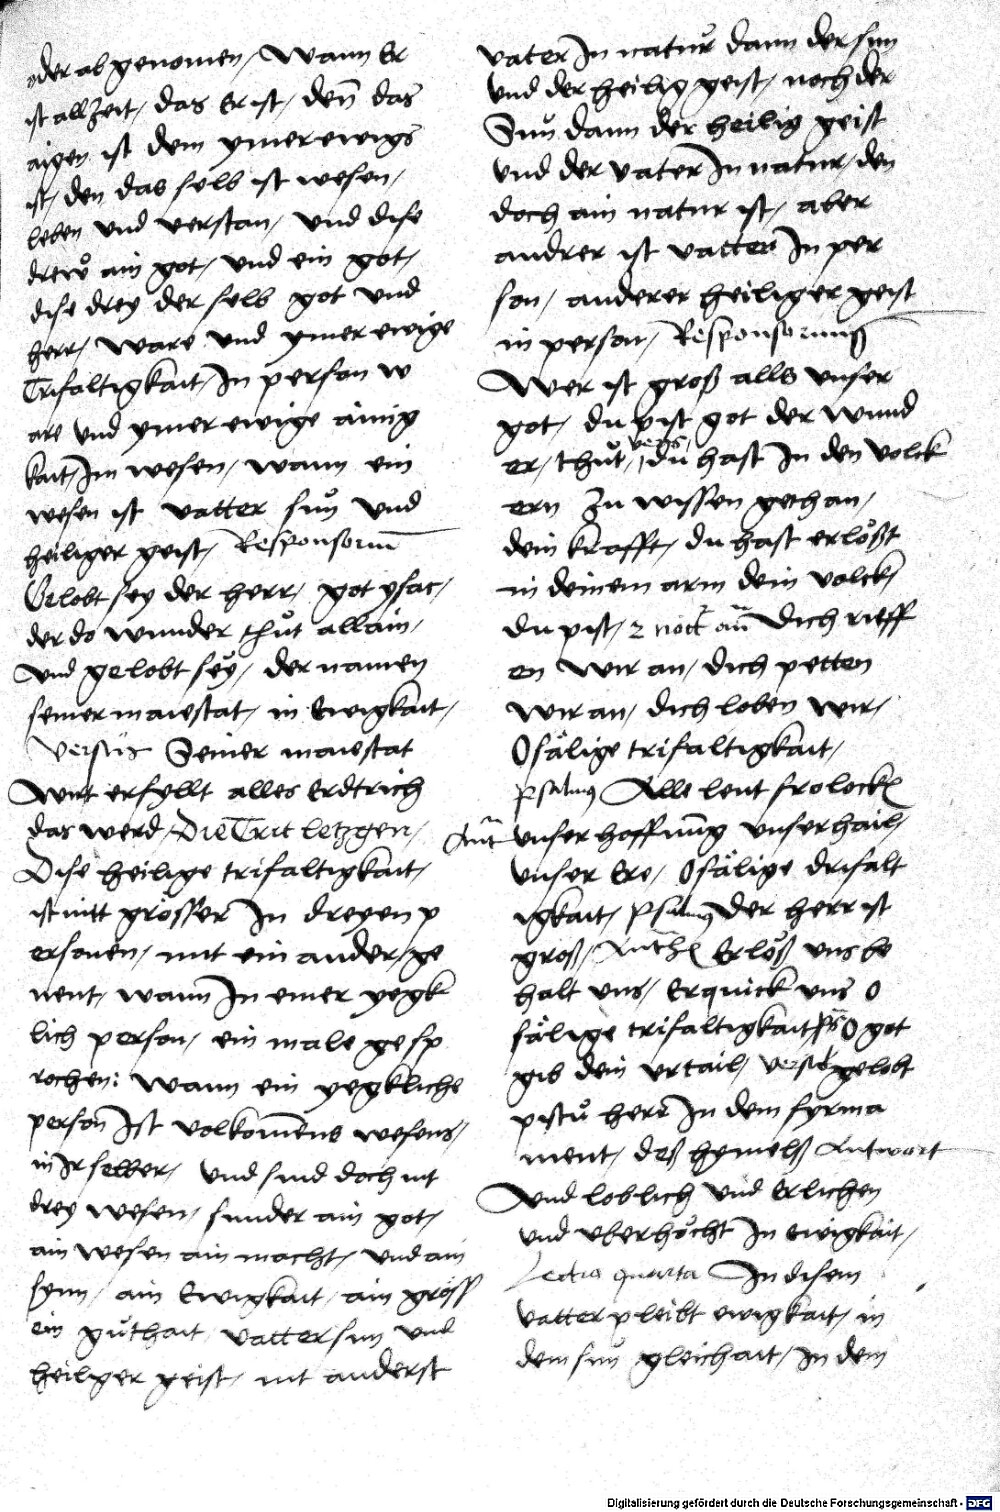 oder ab genomen / Wann Er
ist all Zeit / das Er ist / den̄ das
aigen ist dem ymer ewigs
ist / den das selb ist wesen /
leben und verstan / und dise
drew ain got / und ein got /
dise drey der selb got und
herr / ware und ymer ewige
Trifaltigkait / In person w
are und ymer ewige ainig
kait / Im wesen / wann ein
wesen ist vatter sun̊ und
heiliger geist / Responsoriu̅
Gelobt sey der herr / got ysac /
der do wunder thůt allain /
und gelobt sey / der namen
seiner maiestat / in Ewigkait /
Versus Seiner maiestat
Wirt erfyllt alles Erdtrich
das werd / Die Trit letzgen /
Dise heilige trifaltigkait /
ist nitt grösser In dreyen p
ersonen / mit ein ander / ge
nent / wann In einer yegk
lich person / ein male gesp
rochen : wann ein yegkliche
person̄ Ist volkomēns wesens /
in Ir selber / und sind doch nit
drey wesen / sunder ain got /
ain wesen ain macht / und ain
synn / ain Ewigkait / ain gröss
ein gůthait / vatter sun und
heiliger geist / nit anderst
vater In natůr dann der sun
und der heilig geist / noch der
Sun̊ dann der heilig geist
und der vater In natur / den
doch ain natur ist / aber
andrer ist vatter In per
son / anderer heiliger geist
in person / Responsorium
Wer ist groß alls unser
got / du pist got der wund
er / thůt / vers / du hast In den volck
ern Zu wissen gethan /
dein krafft / du hast erlößt
in deinem arm dein volck /
du pist / 2 noct an̄ Dich rieff
en wir an / dich petten
wir an / dich loben wir /
O sälige trifaltigkait /
psalmus Alle leut frolock
Ant̄ unser hoffnung unser hail /
unser Ere / O sälige drifalt
igkait / Psalmus Der herr ist
groß / Anth Erlöß uns be
halt uns / Erquick uns O
sälige trifaltigkait / ps̄ O got
gib dein urtail / versic gelobt
pistů herr In dem fyrma
ment / deß hymelß Antwort
Und loblich und Erlichen
und uberhöcht In ewigkait /
Lectio quarta In disem
vatter pleibt ewigkait / in
dem sun̊ gleichait / In dem
Digitalisierung gefördert durch die Deutsche Forschungsgemeinschaft - DFG